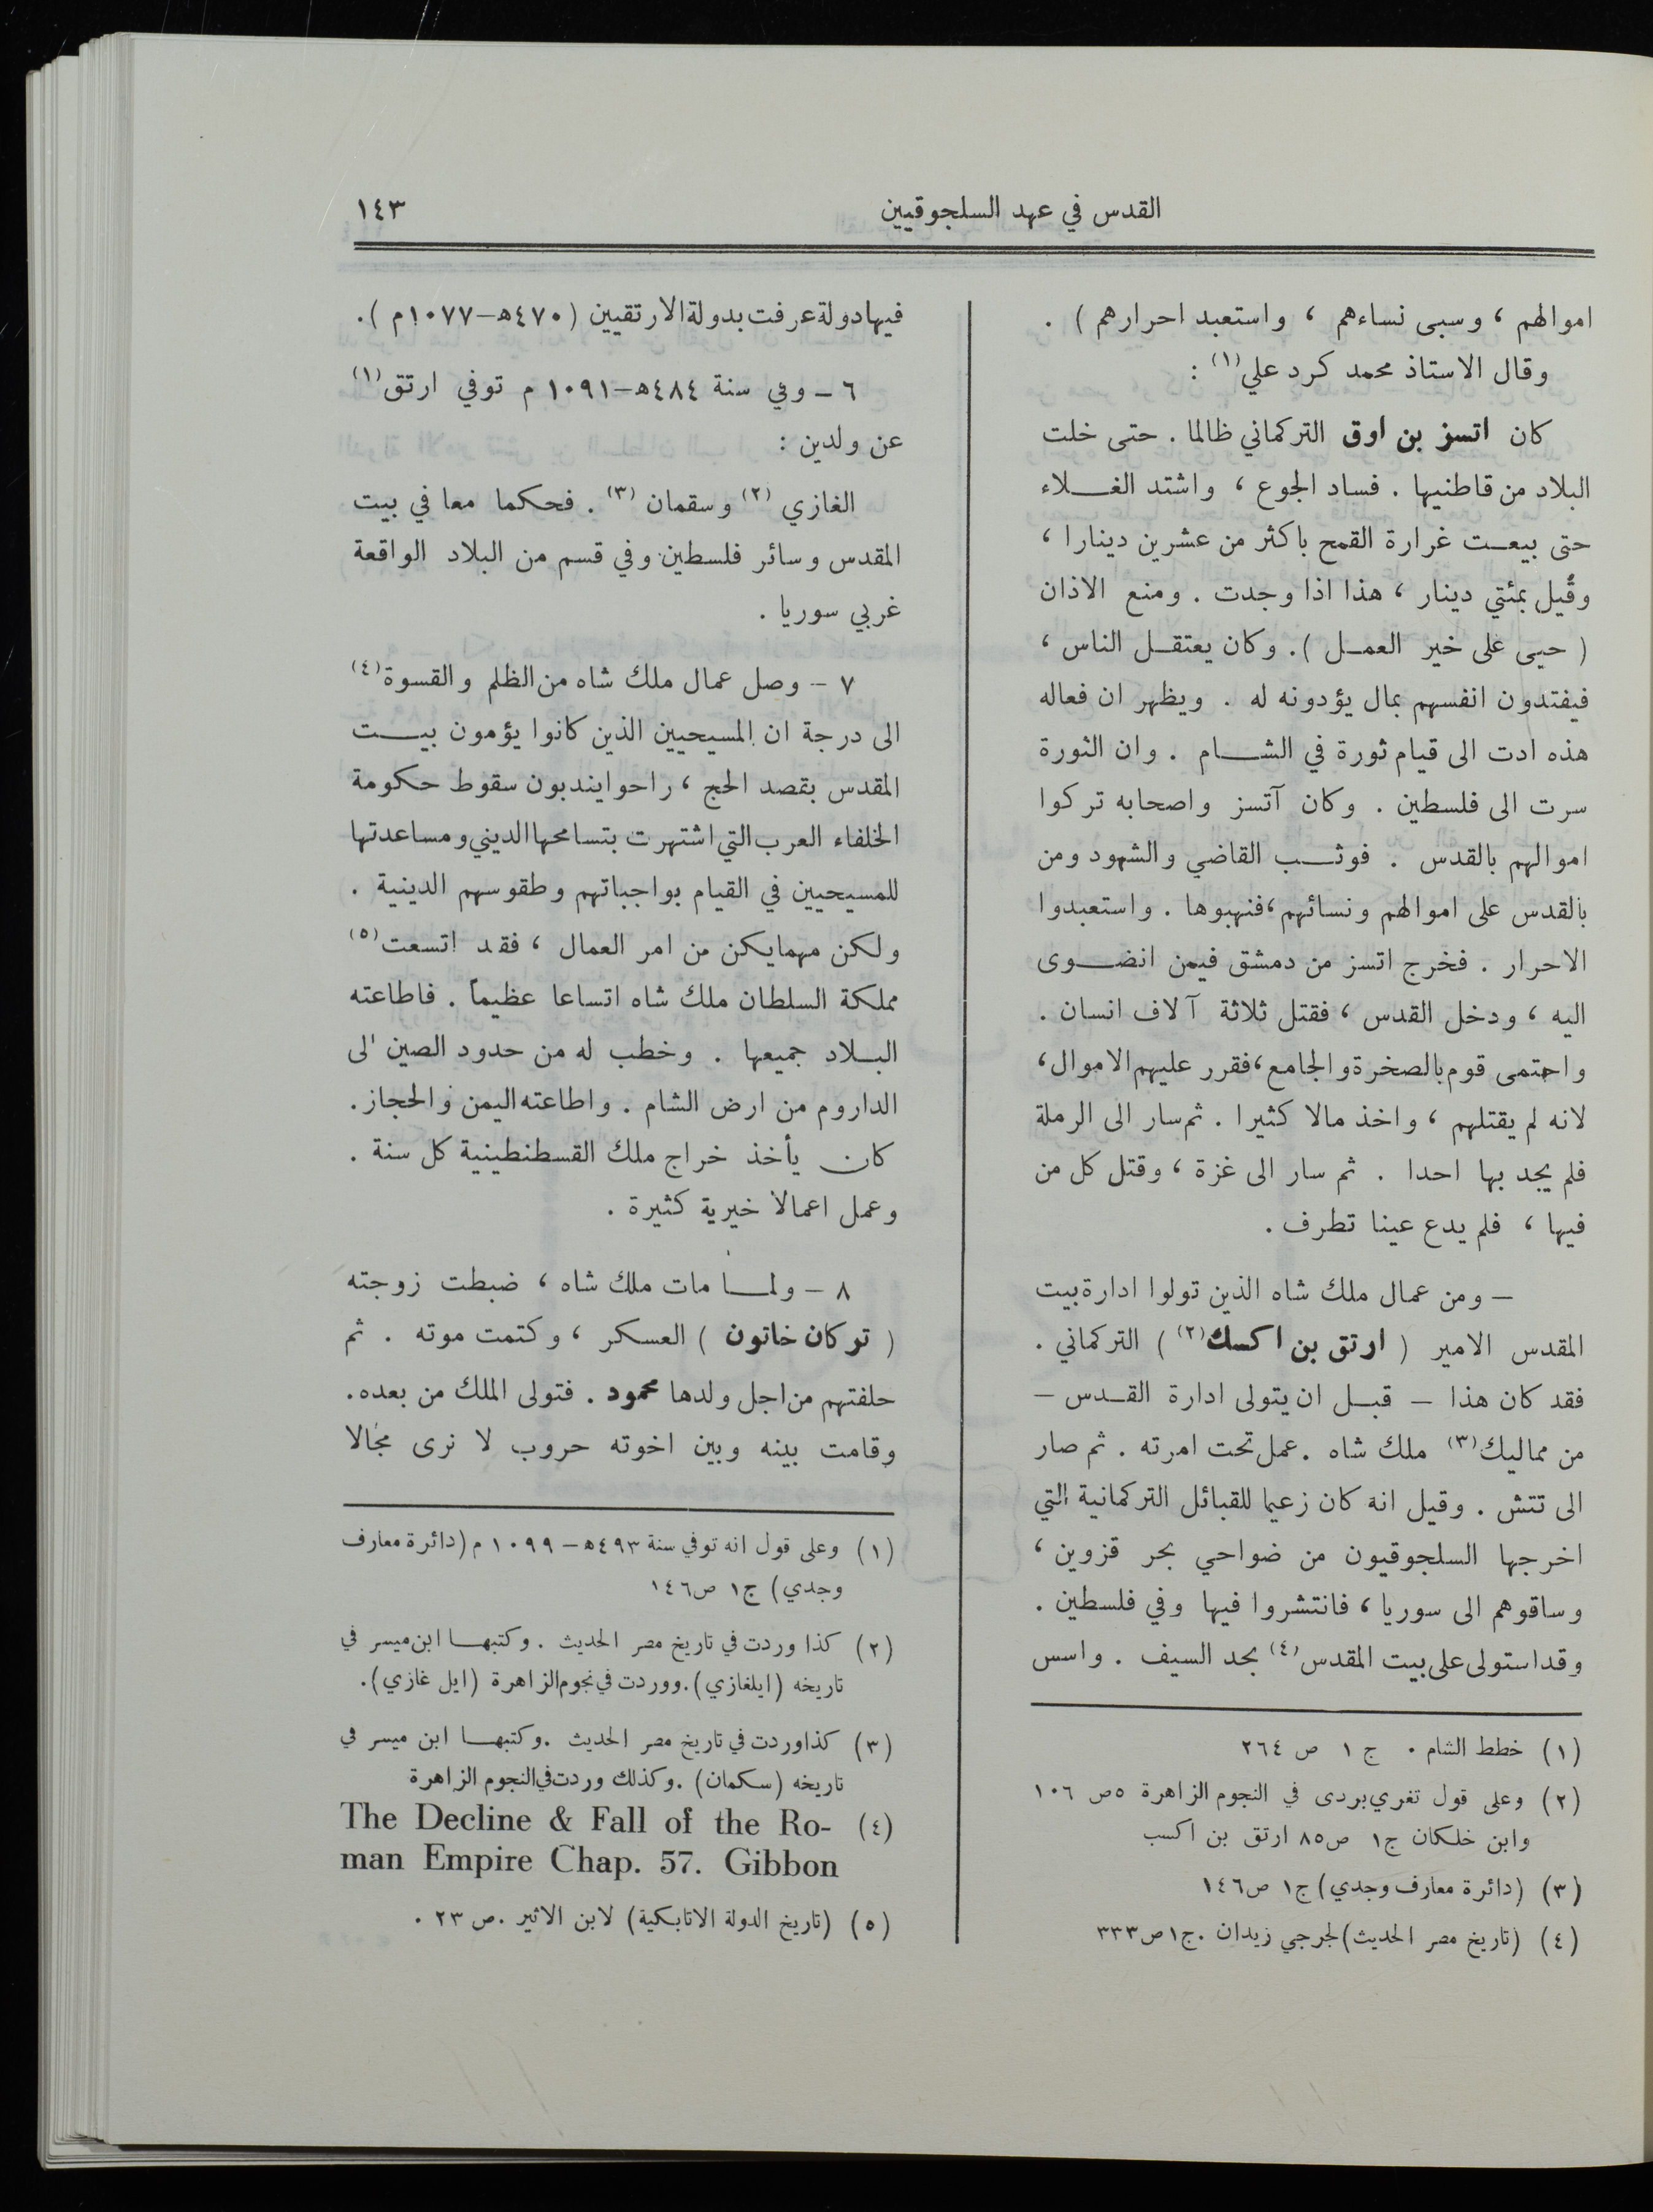 القدس في عهد السلجوقيين
١٤٣
اموالهم ، وسبى نساءهم ، واستعبد احرارهم ) .
وقال الاستاذ محمد كرد علي(١) :
كان اتسز بن اوق التركماني ظالما . حتى خلت
البلاد من قاطنيها . فساد الجوع ، واشتد الغلاء
حتى بيعت غرارة القمح باكثر من عشرين دينارا ،
وقيل بمئتي دينار ، هذا اذا وجدت . ومنع الاذان
( حيى على خير العمل ) . وكان يعتقل الناس ،
فيفتدون انفسهم بمال يؤدونه له . ويظهر ان فعاله
هذه ادت الى قيام ثورة في الشام . وان الثورة
سرت الى فلسطين . وكان آتسز واصحابه تركوا
اموالهم بالقدس . فوثب القاضي والشهود ومن
بالقدس على اموالهم ونسائهم ، فنهبوها . واستعبدوا
الاحرار . فخرج اتسز من دمشق فيمن انضوى
اليه ، ودخل القدس ، فقتل ثلاثة آلاف انسان .
واحتمى قوم بالصخرة والجامع ، فقرر عليهم الاموال ،
لانه لم يقتلهم ، واخذ مالا كثيرا . ثم سار الى الرملة
فلم يجد بها احدا . ثم سار الى غزة ، وقتل كل من
فيها ، فلم يدع عينا تطرف .
– ومن عمال ملك شاه الذين تولوا ادارة بيت
المقدس الامير ( ارتق بن اكسك(٢) ) التركماني .
فقد كان هذا – قبل ان يتولى ادارة القدس –
من مماليك(٣) ملك شاه . عمل تحت امرته . ثم صار
الى تتش . وقيل انه كان زعيما للقبائل التركمانية التي
اخرجها السلجوقيون من ضواحي بحر قزوين ،
وساقوهم الى سوريا ، فانتشروا فيها وفي فلسطين .
وقد استولى على بيت المقدس(٤) بحد السيف . واسس
(١) خطط الشام . ج ١ ص ٢٦٤
(٢) وعلى قول تغري بردى في النجوم الزاهرة ٥ص ١٠٦
وابن خلكان ج١ ص٨٥ ارتق بن اكسب
(٣) (دائرة معارف وجدي) ج١ ص١٤٦
(٤) (تاريخ مصر الحديث) لجرجي زيدان . ج١ ص٣٣٣
فيها دولة عرفت بدولة الارتقيين ( ٤٧٠ه–١٠٧٧م ) .
٦ – وفي سنة ٤٨٤ه–١٠٩١ م توفي ارتق(١)
عن ولدين :
الغازي (٢) وسقمان (٣) . فحكما معا في بيت
المقدس وسائر فلسطين وفي قسم من البلاد الواقعة
غربي سوريا .
٧ – وصل عمال ملك شاه من الظلم والقسوة(٤)
الى درجة ان المسيحيين الذين كانوا يؤمون بيت
المقدس بقصد الحج ، راحوا يندبون سقوط حكومة
الخلفاء العرب التي اشتهرت بتسامحها الديني ومساعدتها
للمسيحيين في القيام بواجباتهم وطقوسهم الدينية .
ولكن مهما يكن من امر العمال ، فقد اتسعت(٥)
مملكة السلطان ملك شاه اتساعا عظيماً . فاطاعته
البلاد جميعها . وخطب له من حدود الصين الى
الداروم من ارض الشام . واطاعته اليمن والحجاز .
كان يأخذ خراج ملك القسطنطينية كل سنة .
وعمل اعمالا خيرية كثيرة .
٨ – ولما مات ملك شاه ، ضبطت زوجته
( توكان خاتون ) العسكر ، وكتمت موته . ثم
حلفتهم من اجل ولدها محمود . فتولى الملك من بعده .
وقامت بينه وبين اخوته حروب لا نرى مجالا
(١) وعلى قول انه توفي سنة ٤٩٣ه–١٠٩٩ م (دائرة معارف
وجدي) ج١ ص١٤٦
(٢) كذا وردت في تاريخ مصر الحديث . وكتبها ابن ميسر في
تاريخه (ايلغازي) . ووردت في نجوم الزاهرة (ايل غازي) .
(٣) كذا وردت في تاريخ مصر الحديث . وكتبها ابن ميسر في
تاريخه (سكمان) . وكذلك وردت في النجوم الزاهرة
(٤) The Decline & Fall of the Ro-
man Empire Chap. 57. Gibbon
(٥) (تاريخ الدولة الاتابكية) لابن الاثير . ص ٢٣ .